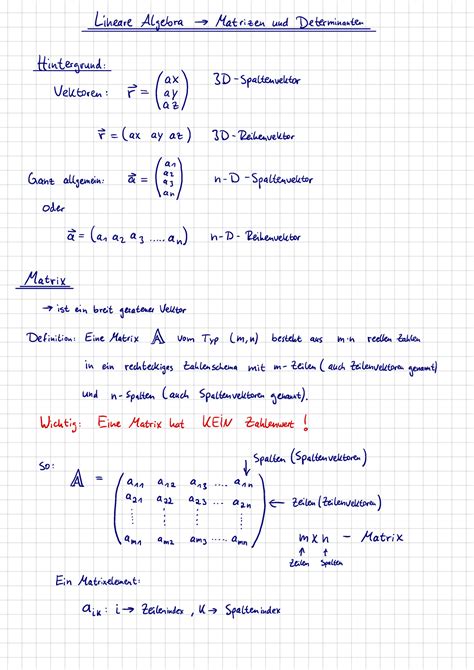 Lineare Algebra → Matrizen und Determinanten
Hintergrund:
Vektoren: r⃗ = (ax ay az) 3D-Spaltenvektor
r⃗ = (ax ay az) 3D-Reihenvektor
Ganz allgemein: a⃗ = (a1 a2 a3 an) n-D-Spaltenvektor
oder
a⃗ = (a1 a2 a3 ..... an) n-D-Reihenvektor
Matrix
→ ist ein breit geratener Vektor
Definition: Eine Matrix 𝔸 vom Typ (m,n) besteht aus m·n reellen Zahlen
in ein rechteckiges Zahlenschema mit m-Zeilen (auch Zeilenvektoren genannt)
und n-Spalten (auch Spaltenvektoren genannt).
Wichtig: Eine Matrix hat KEIN Zahlenwert!
Spalten (Spaltenvektoren)
So: 𝔸 =
a11 a12 a13 ... a1n
a21 a22 a23 ... a2n ← Zeilen (Zeilenvektoren)
⋮ ⋮ ⋮ ⋮
am1 am2 am3 .... amn
m x n - Matrix
↑ ↑
Zeilen Spalten
Ein Matrixelement:
aik: i → Zeilenindex, k → Spaltenindex